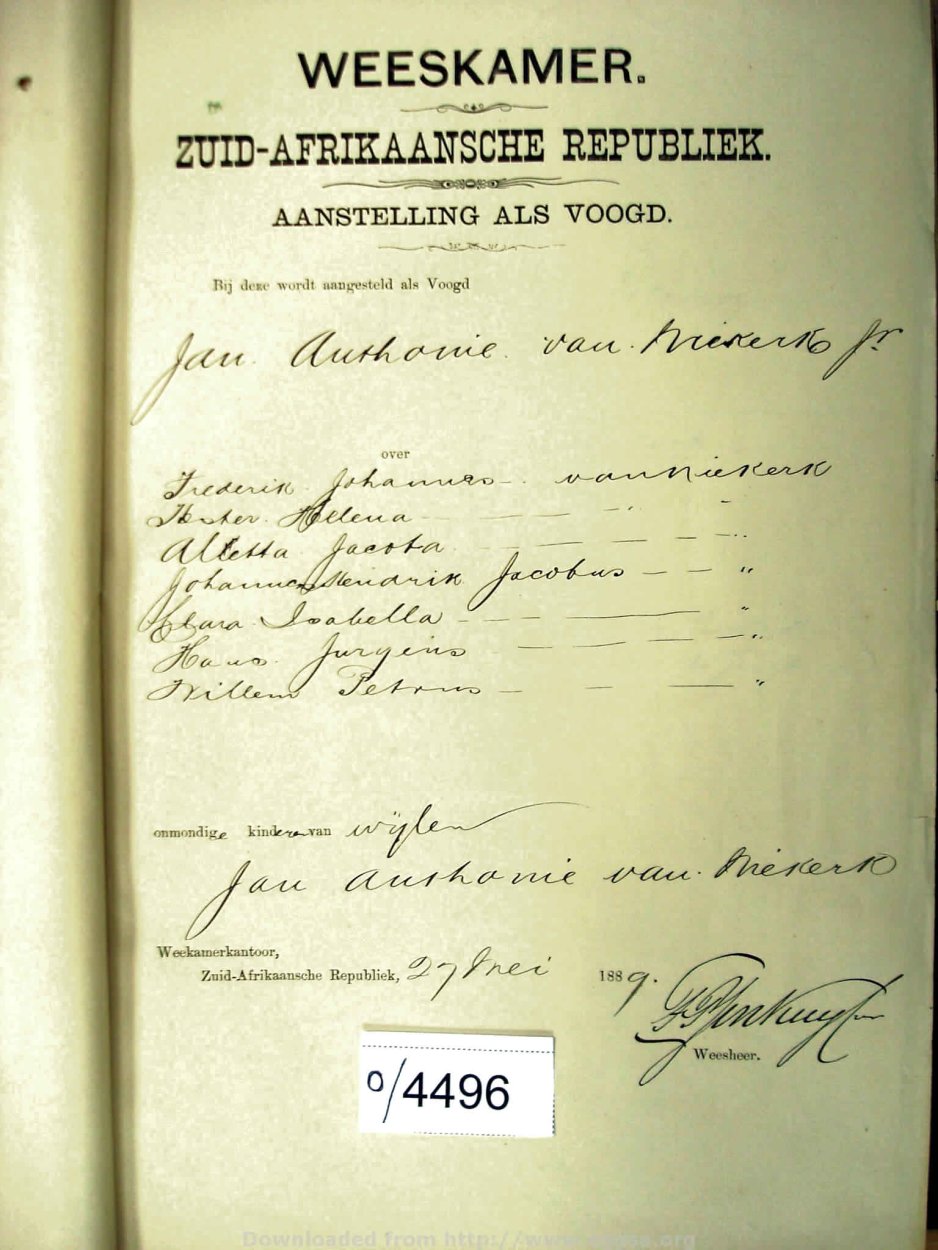 WEESKAMER.
ZUID-AFRIKAANSCHE REPUBLIEK.
AANSTELLING ALS VOOGD.
Bij deze wordt aangesteld als Voogd
Jan Anthonie van Niekerk Jr
over
Frederik Johannes van Niekerk
Hester Helena
Alletta Jacoba
Johannes Hendrik Jacobus — — "
Clara Isabella - - — "
Hans Jurgens — — — — "
Willem Petrus — — — "
onmondige kinderen van wijlen
Jan Anthonie van Niekerk
Weekamerkantoor,
Zuid-Afrikaansche Republiek, 27 Mei 1889.
Weesheer.
0/4496
Downloaded from http://www